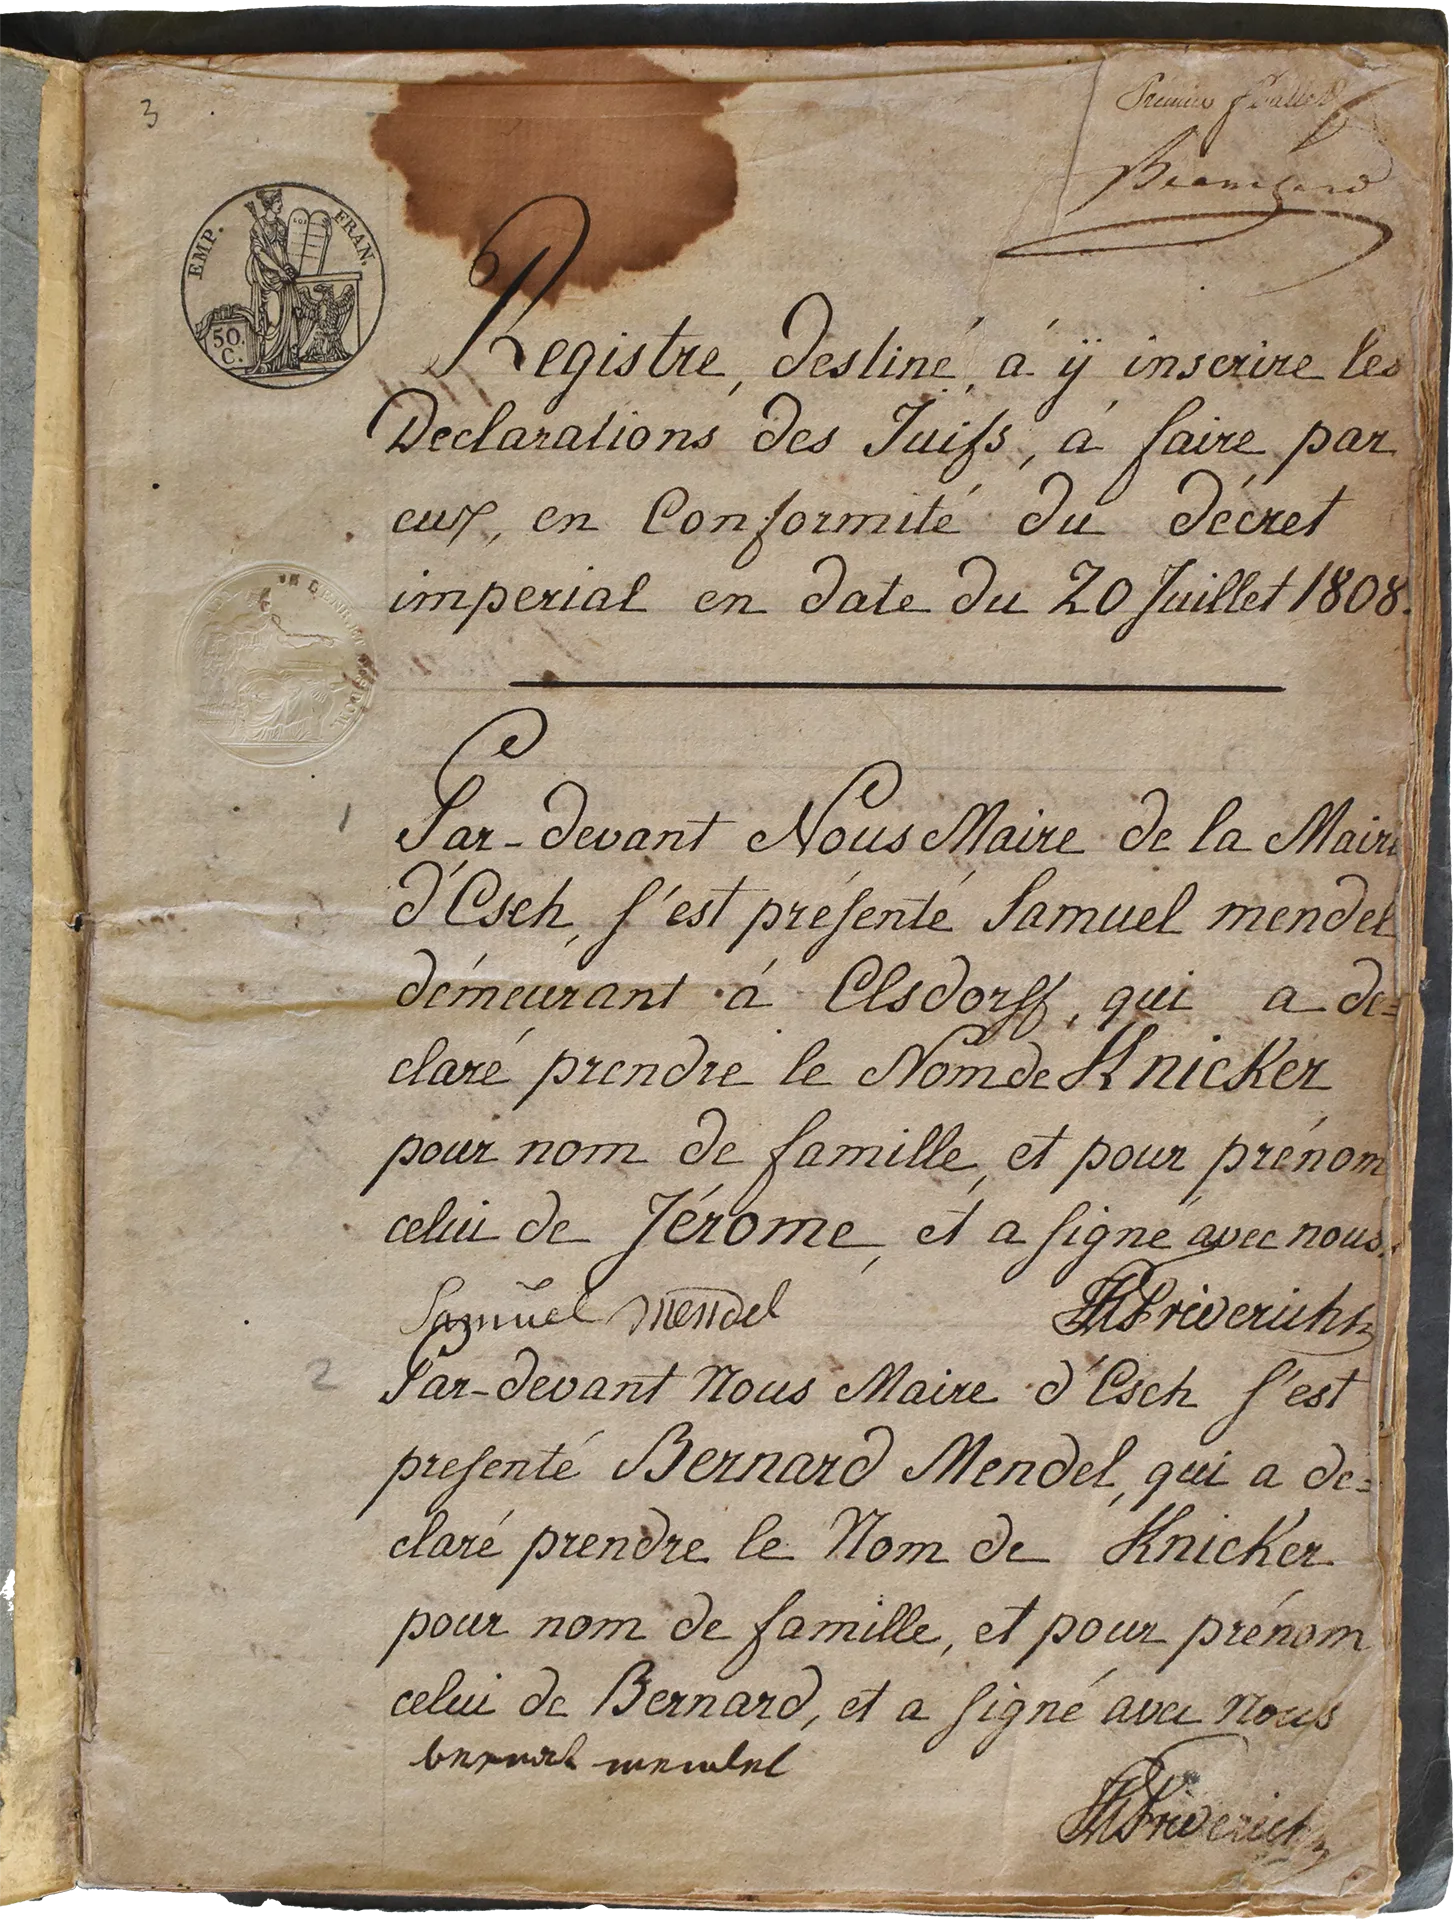 3
Premier
EMP. FRAN.
50.
C.
Registre, destiné, á ÿ inscrire les
Declarations des Juifs, á faire par
eux, en Conformité du décret
imperial en date du 20 Juillet 1808.
1
Par-devant Nous Maire de la Mairi
d'Esch, s'est présenté Samuel mendel
démeurant á Elsdorff, qui a de=
claré prendre le Nom de Knicker
pour nom de famille, et pour prénom
celui de Jérome, et a signé avec nous.
Samuel Mendel
2
Par-devant Nous Maire d'Esch s'est
presenté Bernard Mendel, qui a de=
claré prendre le Nom de Knicker
pour nom de famille, et pour prénom
celui de Bernard, et a signé avec Nous
mendel